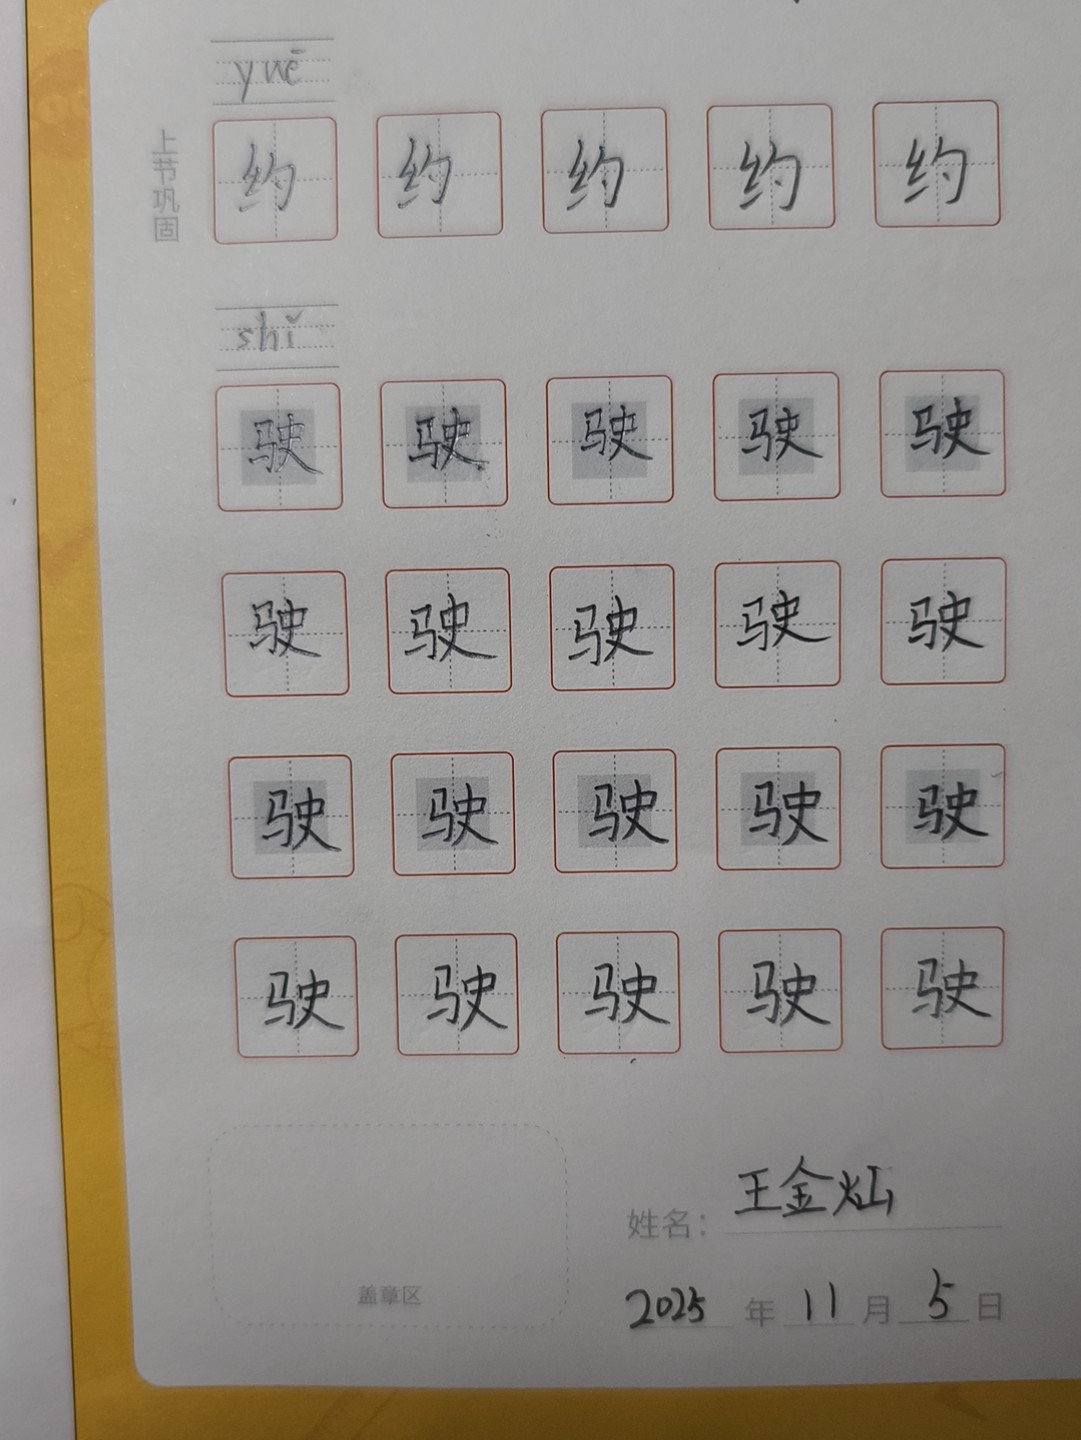 yuē
上节巩固
约 约 约 约 约
shǐ
驶 驶 驶 驶 驶
驶 驶 驶 驶 驶
驶 驶 驶 驶 驶
驶 驶 驶 驶 驶
姓名: 王金灿
盖章区
2025 年 11 月 5 日